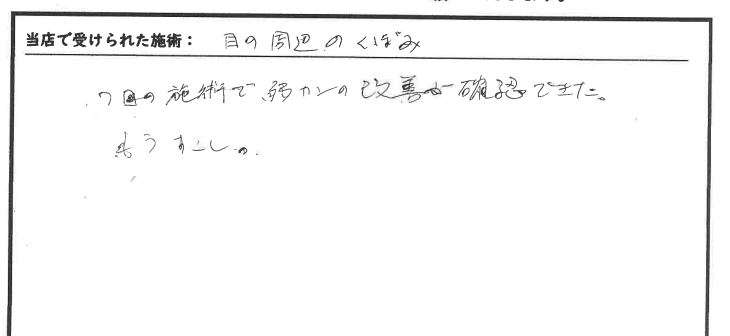 当店で受けられた施術： 目の周辺のくぼみ
7回の施術で弱カンの改善が確認できた。
もうすこし。